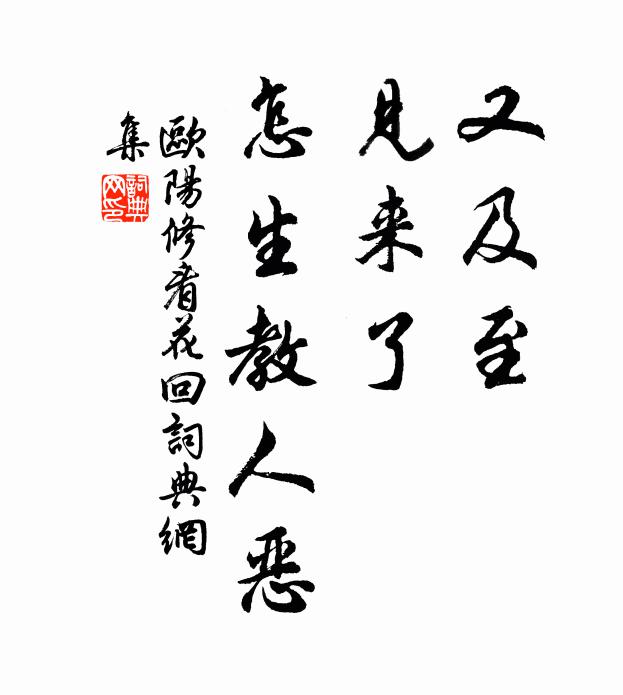 又及至
见来了
怎生教人恶
歐陽修看花回詞典網
集
詞典
网印